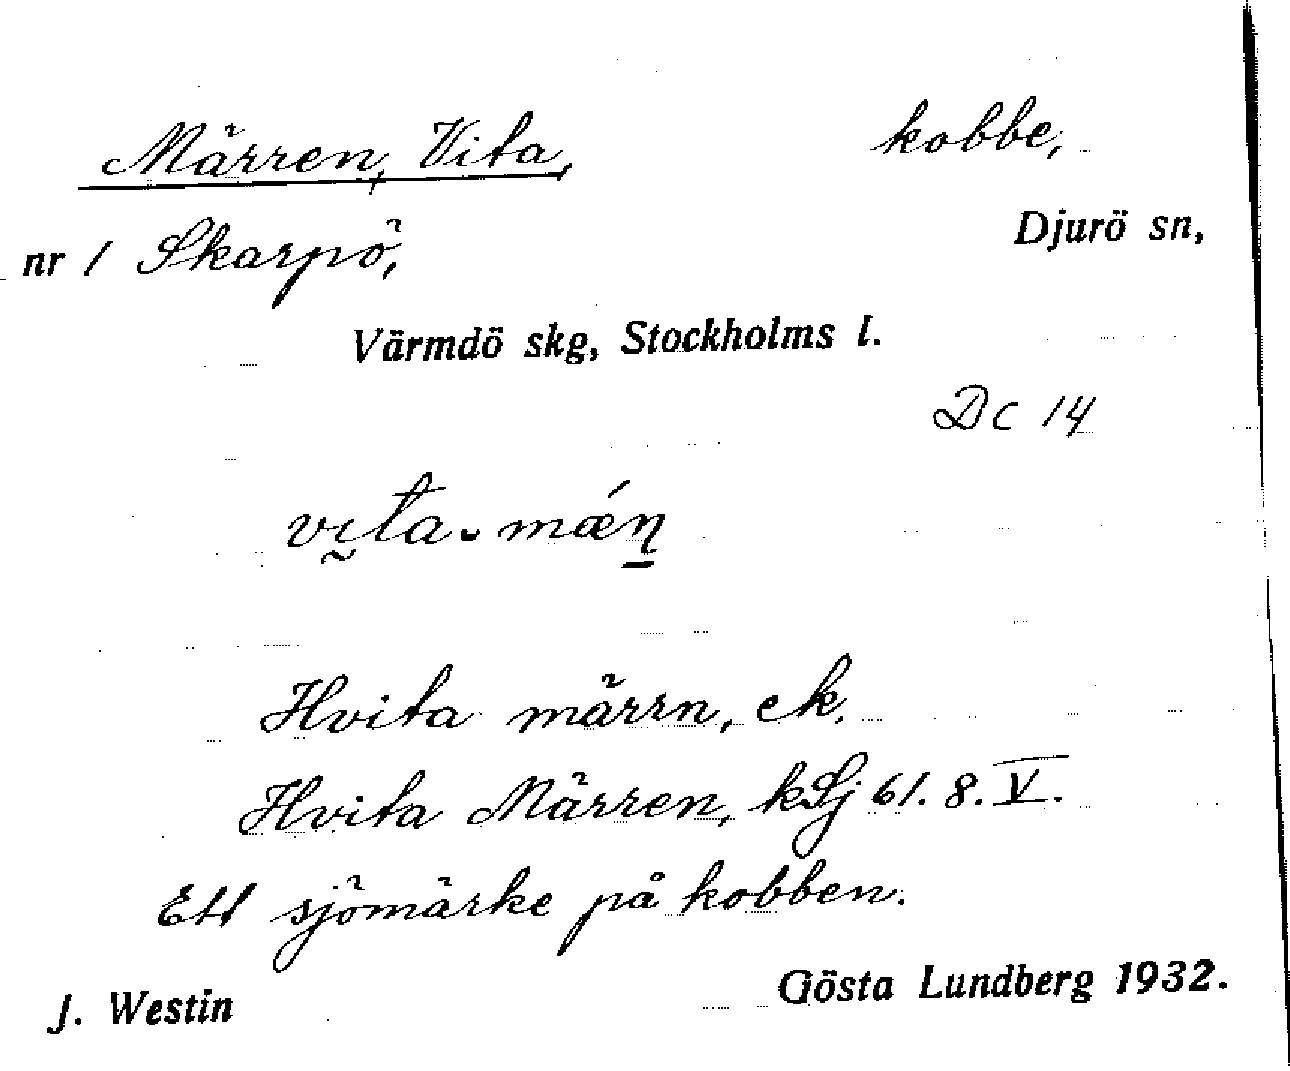 Märren, Vita, kobbe,
nr 1 Skarpö, Djurö sn,
Värmdö skg, Stockholms l.
Dc 14
vı̰ta ̆ mǽn̲
Hvita märrn, ek.
Hvita Märren, kSj 61. 8. V.
Ett sjömärke på kobben.
J. Westin Gösta Lundberg 1932.